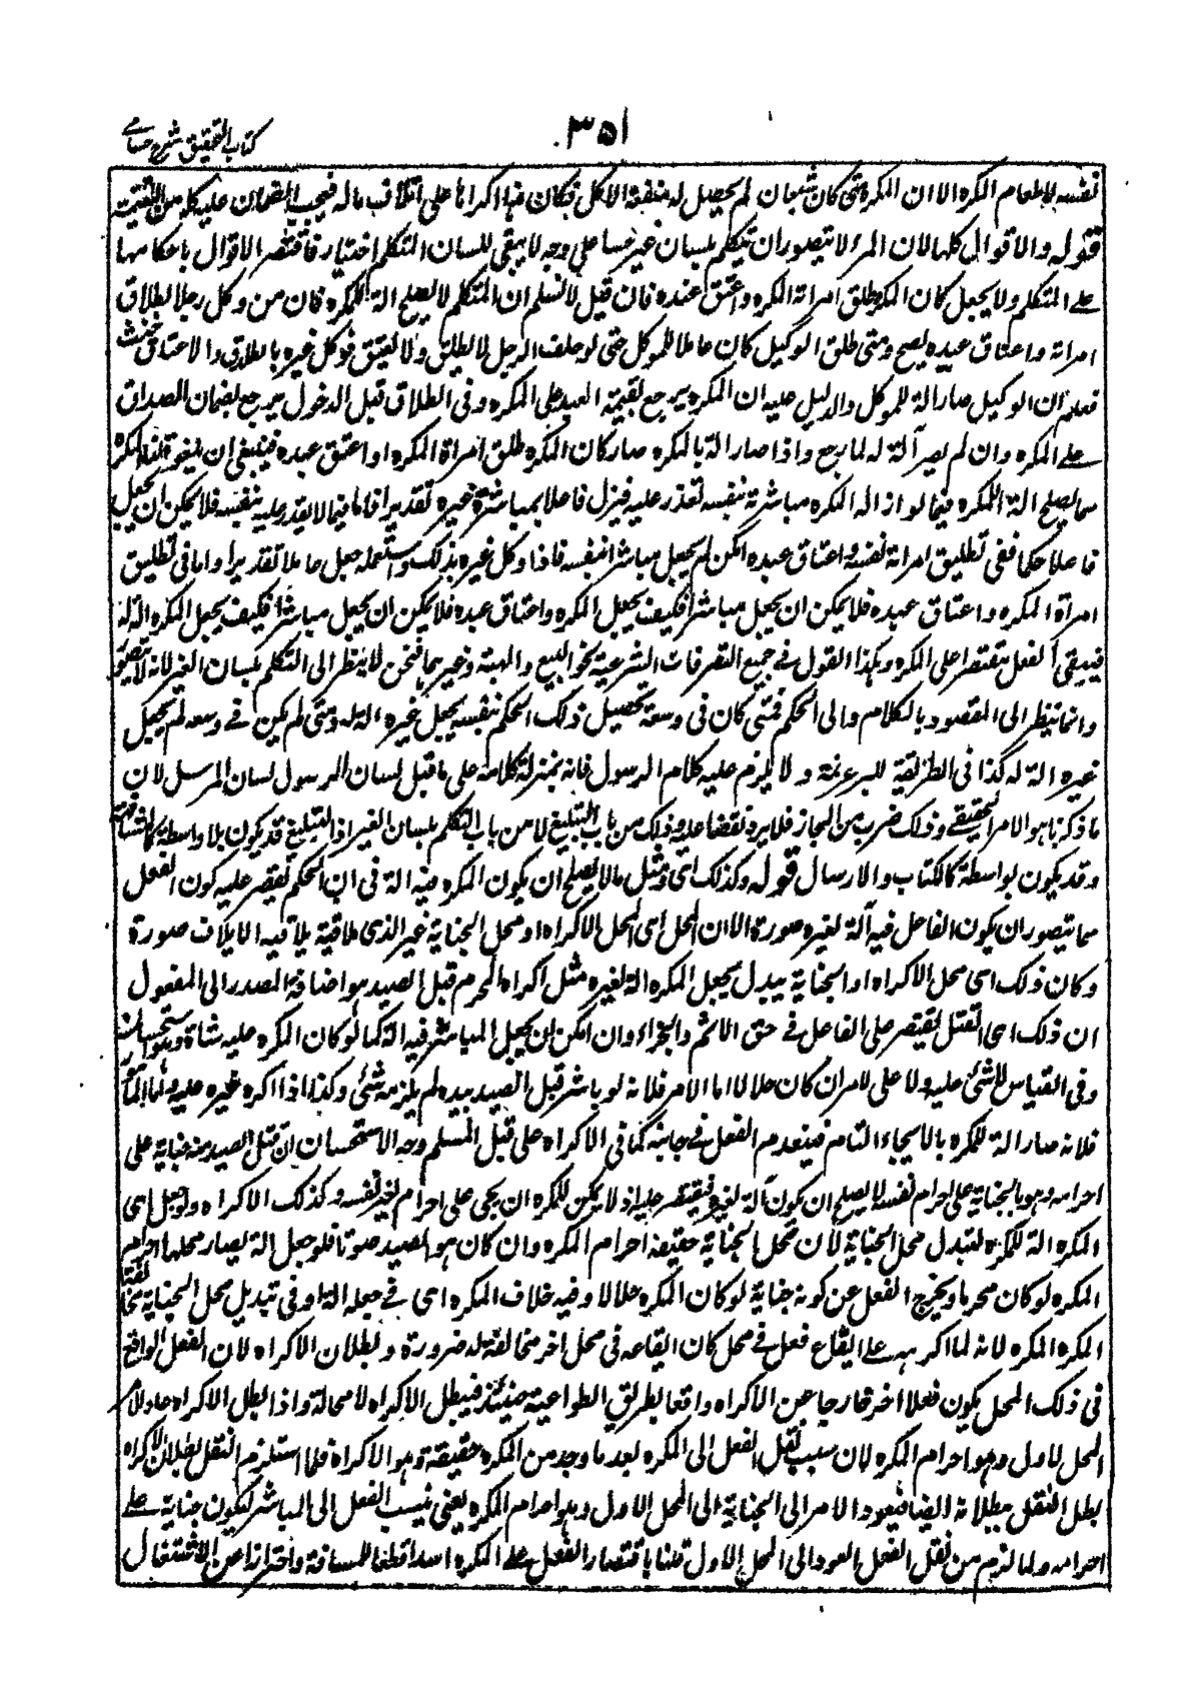 كتاب التحقيق شرح حسامي
٣٥١
نفسه لاطعام المكره الا ان المكره متى كان شبعان لم يحصل له منفعة الاكل فكان هذا اكراها على اتلاف ماله فيجب الضمان عليه كله من القنية
قوله والاقوال كلها لان المرء لا يتصور ان يتكلم بلسان غيره مما على وجه لا يبقى للسان المتكلم اختيار فاقتصر الاقوال باحكامها
على المتكلم ولا يجعل كان المكره طلق امراة المكره واعتق عبده فان قيل لا نسلم ان المتكلم لا يصلح الة للمكره فان من وكل رجلا بطلاق
امراته واعتاق عبده يصح ومتى طلق الوكيل كان عاملا للموكل حتى لو حلف الرجل لا يطلق ولا يعتق فوكل غيره بالطلاق والاعتاق حنث
فعلم ان الوكيل صار الة للموكل والدليل عليه ان المكره يرجع بقيمة العبد على المكره وفي الطلاق قبل الدخول يرجع بضمان الصداق
على المكره وان لم يصر آلة له لما رجع واذا صار الة بالمكره صار كان المكره طلق امراة المكره او اعتق عبده فينبغي ان يلغو قلنا المكره
مما يصلح الة للمكره فيما لو اراد المكره مباشرته بنفسه تعذر عليه فينزل فاعلا بمباشرة غيره تقديرا فاما فيما لا يقدر عليه بنفسه فلا يمكن ان يجعل
فاعلا حكما ففي تطليق امراة نفسه واعتاق عبده امكن ان يجعل مباشرا بنفسه فاذا وكل غيره بذلك واستعمله جعل عاملا تقديرا واما في تطليق
امراة المكره واعتاق عبده فلا يمكن ان يجعل مباشرا فكيف يجعل المكره واعتاق عبده فلا يمكن ان يجعل مباشرا فكيف يجعل المكره الة له
فيبقى الفعل مقتصرا على المكره وهكذا القول في جميع التصرفات الشرعية نحو البيع والهبة وغيرهما فنحن لا ننظر الى التكلم بلسان الغير لانه لا يتصور
وانما ننظر الى المقصود بالكلام والى الحكم فمتى كان في وسعه تحصيل ذلك الحكم بنفسه يجعل غيره الة له ومتى لم يكن في وسعه لم يجعل
غيره الة له كذا في الطريقة للبرغرية ولا يلزم عليه كلام الرسول فانه بمنزلة كلامه على ما قيل لسان الرسول لسان المرسل لان
ما ذكرنا هو الامر الحقيقي وذلك ضرب من المجاز فلا يرد نقضا عليه وذلك من باب التبليغ لا من باب التكلم بلسان الغير اذ التبليغ قد يكون بلا واسطة كالمشافهة
وقد يكون بواسطة كالكتاب والارسال قوله وكذلك اى ومثل ما لا يصلح ان يكون المكره فيه الة في ان الحكم يقتصر عليه كون الفعل
مما يتصور ان يكون الفاعل فيه آلة لغيره صورة الا ان المحل اى المحل الاكراه او محل الجناية غير الذى ملاقية يلاقيه الاتلاف صورة
وكان ذلك اى محل الاكراه او الجناية يبدل بجعل المكره الة لغيره مثل اكراه المحرم قبل الصيد هو اضافة المصدر الى المفعول
ان ذلك اى القتل يقتصر على الفاعل في حق الاثم والجزاء وان امكن ان يجعل المباشر فيه الة كما لو كان المكره عليه شاة وهو استحسان
وفي القياس لا شئ عليه ولا على الامر ان كان حلالا اما الامر فلانه لو باشر قبل الصيد بيده لم يلزمه شئ وكذا اذا اكره غيره عليه واما المامور
فلانه صار الة للمكره بالالجاء التام فينعدم الفعل في جانبه كما في الاكراه على قتل المسلم وجه الاستحسان ان قتل الصيد منه جناية على
احرامه وهو بالجناية على احرام نفسه لا يصلح ان يكون آلة لغيره فيقتصر عليه اذ لا يمكن للمكره ان يجنى على احرام لغير نفسه وكذلك الاكراه ولو جعل اى
المكره الة للمكره لتبدل محل الجناية لان محل الجناية حقيقة احرام المكره وان كان هو الصيد صورة فلو جعل الة يصار محلها احرام
المكره لو كان محرما ويخرج الفعل عن كونه جناية لو كان المكره حلالا وفيه خلاف المكره اى في جعله الة او في تبديل محل الجناية مخالفة
المكره المكره لانه لما اكرهه على ايقاع فعل في محل كان ايقاعه في محل اخر مخالفة له ضرورة وبطلان الاكراه لان الفعل الواقع
في ذلك المحل يكون فعلا اخر خارجا عن الاكراه واقعا بطريق الطواعية حينئذ فيبطل الاكراه لا محالة واذا بطل الاكراه عاد الامر
المحل الاول وهو احرام المكره لان سبب نقل الفعل الى المكره بعد ما وجد من المكره حقيقة وهو الاكراه فلما استلزم النقل بطلان الاكراه
بطل النقل مطلانه ايضا فيعود الامر الى الجناية الى المحل الاول وهو احرام المكره يعنى نسب الفعل الى المباشر ليكون جناية على
احرامه ولما لزم من نقل الفعل العود الى المحل الاول قلنا باقتصار الفعل على المكره ابتداء قطعا للمسافة واحترازا عن الاشتغال